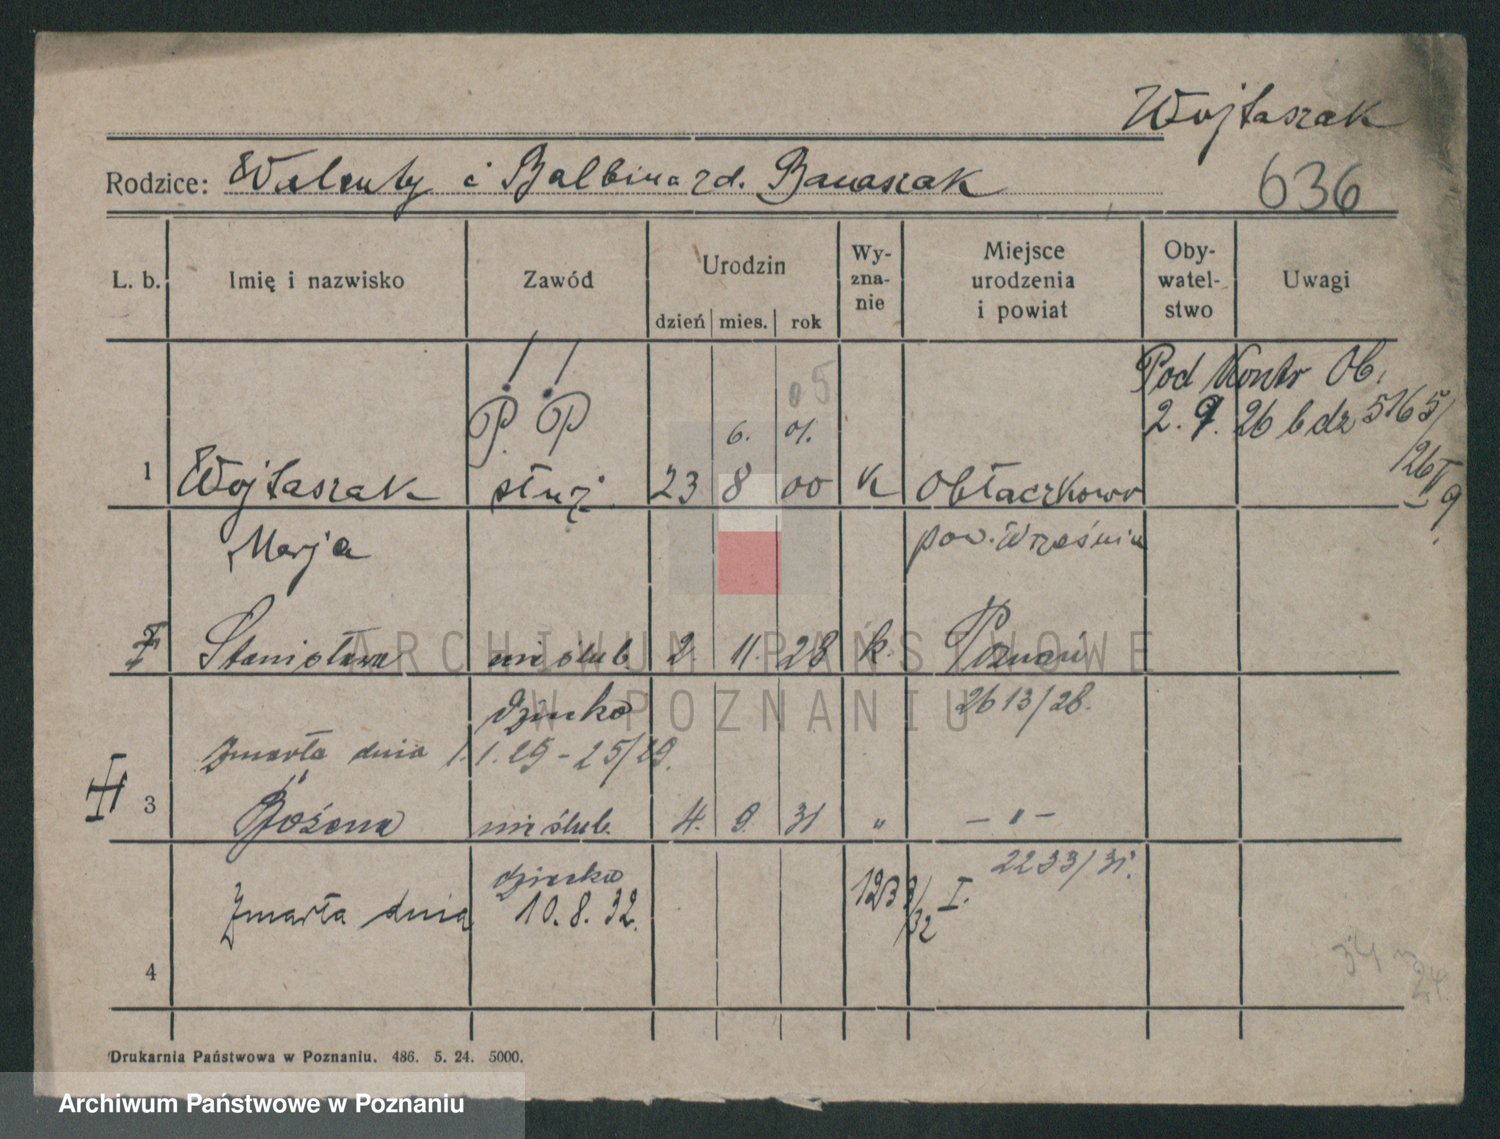 Wojtaszak
Rodzice: Walenty i Balbina zd. Banaszak
636
L. b. Imię i nazwisko Zawód Urodzin dzień mies. rok Wy-zna-nie Miejsce urodzenia i powiat Oby-watel-stwo Uwagi
Pod Kontr Ob.
05
2. 9. 26 l dz 5165/
P. P
6. 01.
126
1 Wojtaszak służ. 23 8 00 K Obłaczkowo
Marja pow. Września
Stanisława nieślub. 2. 11. 28 k. Poznań
dziecko 2613/28.
zmarła dnia 1.1.29 - 25/29.
3 Bożena nieślub. 4. 9. 31 " - " -
dziecko 2233/31.
zmarła dnia 10. 8. 32. 1233/32 I.
4
34
24.
Drukarnia Państwowa w Poznaniu. 486. 5. 24. 5000.
ARCHIWUM PAŃSTWOWE
W POZNANIU
Archiwum Państwowe w Poznaniu